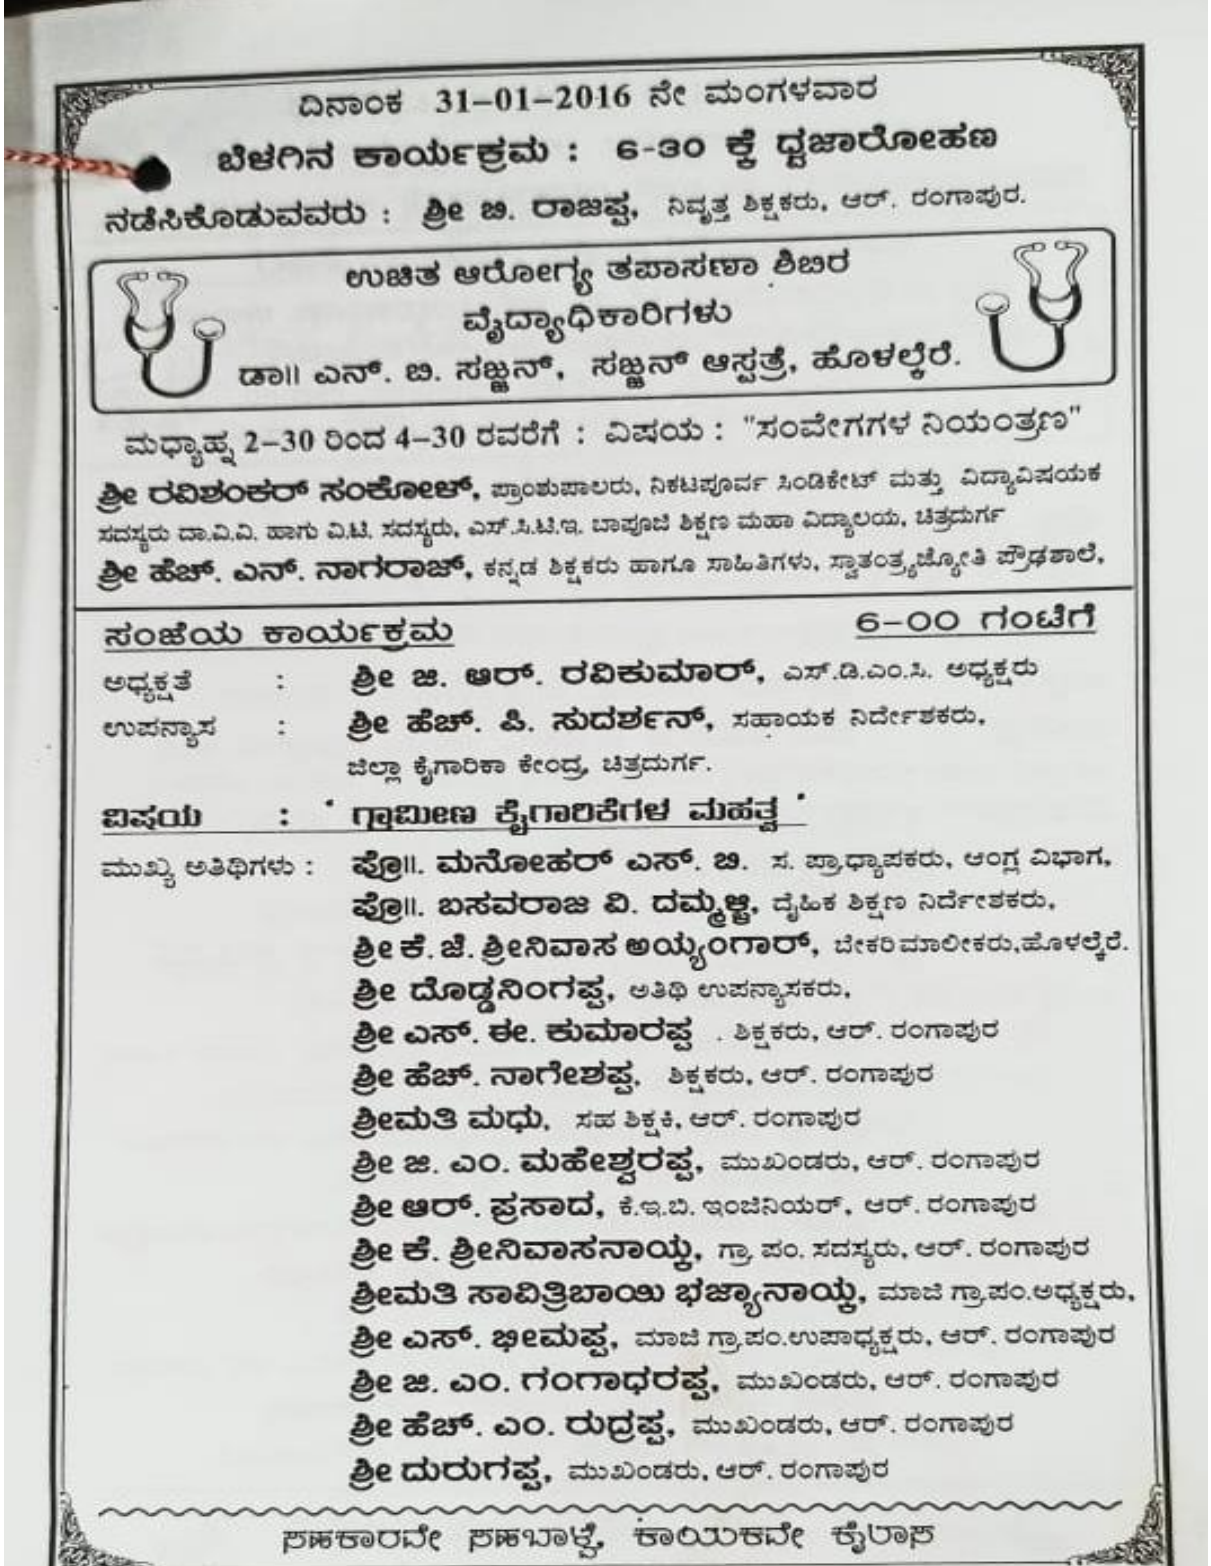 ದಿನಾಂಕ 31-01-2016 ನೇ ಮಂಗಳವಾರ
ಬೆಳಗಿನ ಕಾರ್ಯಕ್ರಮ : 6-30 ಕ್ಕೆ ಧ್ವಜಾರೋಹಣ
ನಡೆಸಿಕೊಡುವವರು : ಶ್ರೀ ಬಿ. ರಾಜಪ್ಪ, ನಿವೃತ್ತ ಶಿಕ್ಷಕರು, ಆರ್. ರಂಗಾಪುರ.
ಉಚಿತ ಆರೋಗ್ಯ ತಪಾಸಣಾ ಶಿಬಿರ
ವೈದ್ಯಾಧಿಕಾರಿಗಳು
ಡಾ|| ಎನ್. ಬಿ. ಸಜ್ಜನ್, ಸಜ್ಜನ್ ಆಸ್ಪತ್ರೆ, ಹೊಳಲ್ಕೆರೆ.
ಮಧ್ಯಾಹ್ನ 2-30 ರಿಂದ 4-30 ರವರೆಗೆ : ವಿಷಯ : "ಸಂವೇಗಗಳ ನಿಯಂತ್ರಣ"
ಶ್ರೀ ರವಿಶಂಕರ್ ಸಂಕೋಳ್, ಪ್ರಾಂಶುಪಾಲರು, ನಿಕಟಪೂರ್ವ ಸಿಂಡಿಕೇಟ್ ಮತ್ತು ವಿದ್ಯಾವಿಷಯಕ
ಸದಸ್ಯರು ದಾ.ವಿ.ವಿ. ಹಾಗು ವಿ.ಟಿ. ಸದಸ್ಯರು, ಎಸ್.ಸಿ.ಟಿ.ಇ. ಬಾಪೂಜಿ ಶಿಕ್ಷಣ ಮಹಾ ವಿದ್ಯಾಲಯ, ಚಿತ್ರದುರ್ಗ
ಶ್ರೀ ಹೆಚ್. ಎನ್. ನಾಗರಾಜ್, ಕನ್ನಡ ಶಿಕ್ಷಕರು ಹಾಗೂ ಸಾಹಿತಿಗಳು, ಸ್ವಾತಂತ್ರ್ಯಜ್ಯೋತಿ ಪ್ರೌಢಶಾಲೆ,
ಸಂಜೆಯ ಕಾರ್ಯಕ್ರಮ 6-00 ಗಂಟೆಗೆ
ಅಧ್ಯಕ್ಷತೆ : ಶ್ರೀ ಜಿ. ಆರ್. ರವಿಕುಮಾರ್, ಎಸ್.ಡಿ.ಎಂ.ಸಿ. ಅಧ್ಯಕ್ಷರು
ಉಪನ್ಯಾಸ : ಶ್ರೀ ಹೆಚ್. ಪಿ. ಸುದರ್ಶನ್, ಸಹಾಯಕ ನಿರ್ದೇಶಕರು,
ಜಿಲ್ಲಾ ಕೈಗಾರಿಕಾ ಕೇಂದ್ರ, ಚಿತ್ರದುರ್ಗ.
ವಿಷಯ : ' ಗ್ರಾಮೀಣ ಕೈಗಾರಿಕೆಗಳ ಮಹತ್ವ '
ಮುಖ್ಯ ಅತಿಥಿಗಳು : ಪ್ರೊ||. ಮನೋಹರ್ ಎಸ್. ಬಿ. ಸ. ಪ್ರಾಧ್ಯಾಪಕರು, ಆಂಗ್ಲ ವಿಭಾಗ,
ಪ್ರೊ||. ಬಸವರಾಜ ವಿ. ದಮ್ಮಳ್ಳಿ, ದೈಹಿಕ ಶಿಕ್ಷಣ ನಿರ್ದೇಶಕರು,
ಶ್ರೀ ಕೆ. ಜೆ. ಶ್ರೀನಿವಾಸ ಅಯ್ಯಂಗಾರ್, ಬೇಕರಿ ಮಾಲೀಕರು,ಹೊಳಲ್ಕೆರೆ.
ಶ್ರೀ ದೊಡ್ಡನಿಂಗಪ್ಪ, ಅತಿಥಿ ಉಪನ್ಯಾಸಕರು,
ಶ್ರೀ ಎಸ್. ಈ. ಕುಮಾರಪ್ಪ . ಶಿಕ್ಷಕರು, ಆರ್. ರಂಗಾಪುರ
ಶ್ರೀ ಹೆಚ್. ನಾಗೇಶಪ್ಪ, ಶಿಕ್ಷಕರು, ಆರ್. ರಂಗಾಪುರ
ಶ್ರೀಮತಿ ಮಧು, ಸಹ ಶಿಕ್ಷಕಿ, ಆರ್. ರಂಗಾಪುರ
ಶ್ರೀ ಜಿ. ಎಂ. ಮಹೇಶ್ವರಪ್ಪ, ಮುಖಂಡರು, ಆರ್. ರಂಗಾಪುರ
ಶ್ರೀ ಆರ್. ಪ್ರಸಾದ, ಕೆ.ಇ.ಬಿ. ಇಂಜಿನಿಯರ್, ಆರ್. ರಂಗಾಪುರ
ಶ್ರೀ ಕೆ. ಶ್ರೀನಿವಾಸನಾಯ್ಕ, ಗ್ರಾ. ಪಂ. ಸದಸ್ಯರು, ಆರ್. ರಂಗಾಪುರ
ಶ್ರೀಮತಿ ಸಾವಿತ್ರಿಬಾಯಿ ಭಜ್ಯಾನಾಯ್ಕ, ಮಾಜಿ ಗ್ರಾ.ಪಂ.ಅಧ್ಯಕ್ಷರು,
ಶ್ರೀ ಎಸ್. ಭೀಮಪ್ಪ, ಮಾಜಿ ಗ್ರಾ.ಪಂ.ಉಪಾಧ್ಯಕ್ಷರು, ಆರ್. ರಂಗಾಪುರ
ಶ್ರೀ ಜಿ. ಎಂ. ಗಂಗಾಧರಪ್ಪ, ಮುಖಂಡರು, ಆರ್. ರಂಗಾಪುರ
ಶ್ರೀ ಹೆಚ್. ಎಂ. ರುದ್ರಪ್ಪ, ಮುಖಂಡರು, ಆರ್. ರಂಗಾಪುರ
ಶ್ರೀ ದುರುಗಪ್ಪ, ಮುಖಂಡರು, ಆರ್. ರಂಗಾಪುರ
ಸಹಕಾರವೇ ಸಹಬಾಳ್ವೆ, ಕಾಯಕವೇ ಕೈಲಾಸ